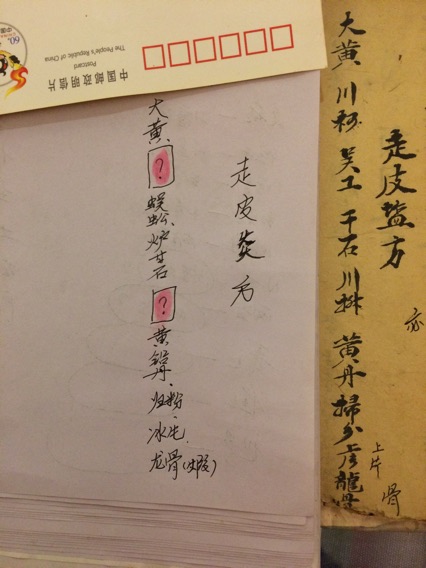 中国邮政明信片
Postcard
The People's Republic of China
60
走皮盐方
大黄 川 吴工 干石 川 黄丹 掃分 龍骨
亦
上片
骨
走皮炎方
大黄 ? 蜈蚣 炉甘石 ? 黄铅丹、归粉、冰片、龙骨